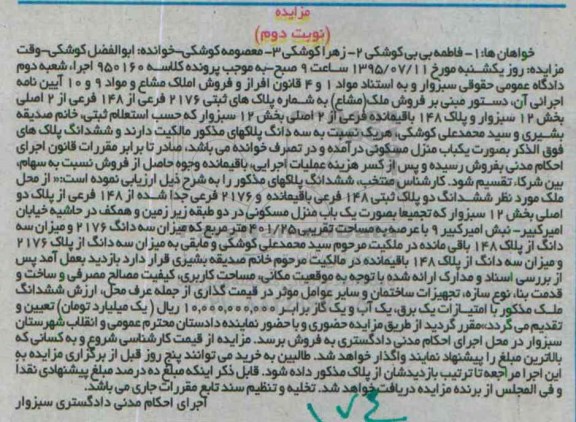 مزایده
(نوبت دوم)
خواهان ها: ۱- فاطمه بی بی کوشکی ۲- زهرا کوشکی ۳- معصومه کوشکی-خوانده: ابوالفضل کوشکی-وقت
مزایده: روز یکشنبه مورخ ۱۳۹۵/۰۷/۱۱ ساعت ۹ صبح-به موجب پرونده کلاسه ۹۵۰۱۶۰ اجرا، شعبه دوم
دادگاه عمومی حقوقی سبزوار و به استناد مواد ۱ و ۴ قانون افراز و فروش املاک مشاع و مواد ۹ و ۱۰ آیین نامه
اجرائی آن، دستور مبنی بر فروش ملک(مشاع) به شماره پلاک های ثبتی ۲۱۷۶ فرعی از ۱۴۸ فرعی از ۲ اصلی
بخش ۱۲ سبزوار و پلاک ۱۴۸ باقیمانده فرعی از ۲ اصلی بخش ۱۲ سبزوار که حسب استعلام ثبتی، خانم صدیقه
بشیری و سید محمدعلی کوشکی، هریک نسبت به سه دانگ پلاکهای مذکور مالکیت دارند و ششدانگ پلاک های
فوق الذکر بصورت یکباب منزل مسکونی درآمده و در تصرف خوانده می باشد، صادر تا برابر مقررات قانون اجرای
احکام مدنی بفروش رسیده و پس از کسر هزینه عملیات اجرایی، باقیمانده وجوه حاصل از فروش نسبت به سهام،
بین شرکا، تقسیم شود. کارشناس منتخب، ششدانگ پلاکهای مذکور را به شرح ذیل ارزیابی نموده است:« از محل
ملک مورد نظر ششدانگ دو پلاک ثبتی ۱۴۸ فرعی باقیمانده و ۲۱۷۶ فرعی جدا شده از ۱۴۸ فرعی از پلاک دو
اصلی بخش ۱۲ سبزوار که تجمیعا بصورت یک باب منزل مسکونی در دو طبقه زیر زمین و همکف در حاشیه خیابان
امیرکبیر- نبش امیرکبیر ۹ با عرصه به مساحت تقریبی ۴۰۱/۲۵ متر مربع که میزان سه دانگ ۲۱۷۶ و میزان سه
دانگ از پلاک ۱۴۸ باقی مانده در ملکیت مرحوم سید محمدعلی کوشکی و مابقی به میزان سه دانگ از پلاک ۲۱۷۶
و میزان سه دانگ از پلاک ۱۴۸ باقیمانده در مالکیت مرحوم خانم صدیقه بشیری قرار دارد بازدید بعمل آمد پس
از بررسی اسناد و مدارک ارائه شده با توجه به موقعیت مکانی، مساحت کاربری، کیفیت مصالح مصرفی و ساخت و
قدمت بنا، نوع سازه، تجهیزات ساختمان و سایر عوامل موثر در قیمت گذاری از جمله عرف محل، ارزش ششدانگ
ملک مذکور با امتیازات یک برق، یک آب و یک گاز برابر ۱۰,۰۰۰,۰۰۰,۰۰۰ ریال ( یک میلیارد تومان) تعیین و
تقدیم می گردد»مقرر گردید از طریق مزایده حضوری و با حضور نماینده دادستان محترم عمومی و انقلاب شهرستان
سبزوار در محل اجرای احکام مدنی دادگستری به فروش برسد. مزایده از قیمت کارشناسی شروع و به کسانی که
بالاترین مبلغ را پیشنهاد نمایند واگذار خواهد شد. طالبین به خرید می توانند پنج روز قبل از برگزاری مزایده به
این اجرا مراجعه تا ترتیب بازدیدشان از پلاک مذکور داده شود. قابل ذکر اینکه مبلغ ده درصد مبلغ پیشنهادی نقدا
و فی المجلس از برنده مزایده دریافت خواهد شد. تخلیه و تنظیم سند تابع مقررات جاری می باشد.
اجرای احکام مدنی دادگستری سبزوار